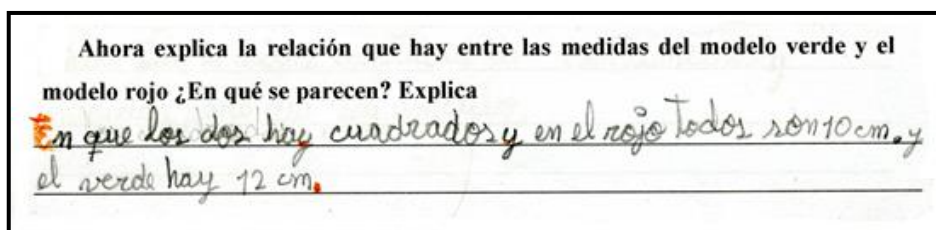 Ahora explica la relación que hay entre las medidas del modelo verde y el
modelo rojo ¿En qué se parecen? Explica
En que los dos hay cuadrados y en el rojo Todos són 10 cm. y
el verde hay 12 cm.